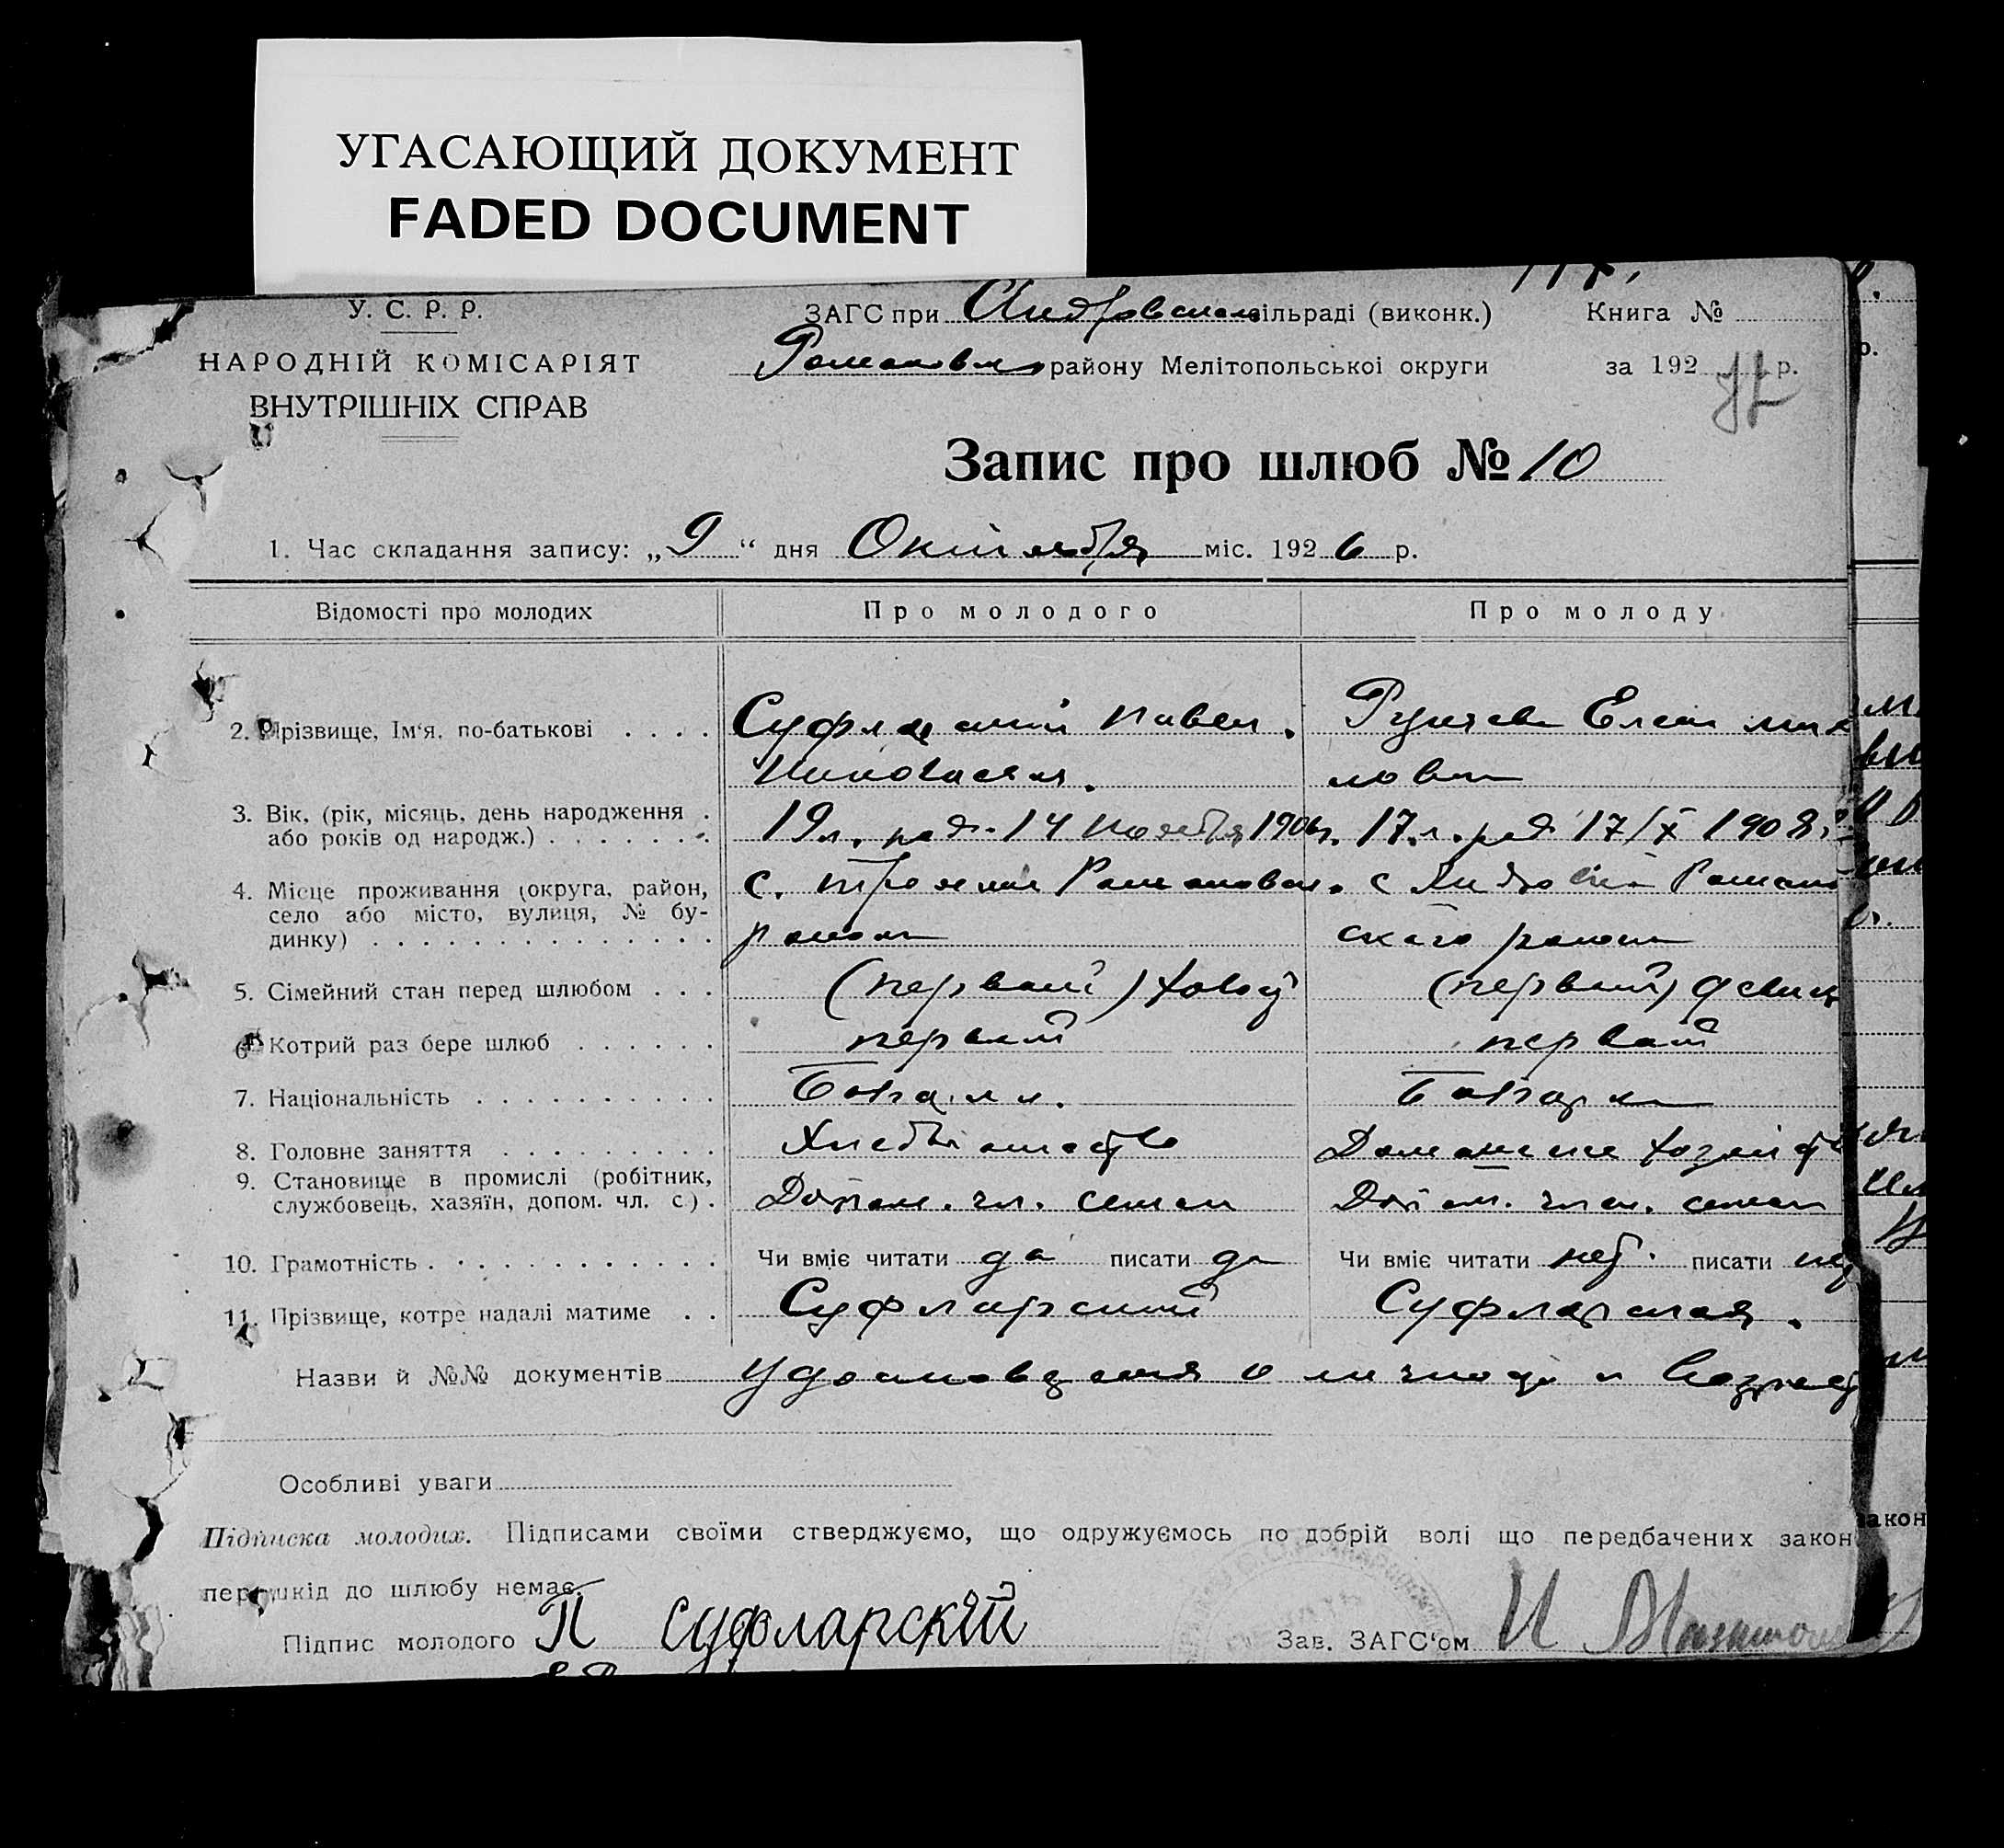 УГАСАЮЩИЙ ДОКУМЕНТ
FADED DOCUMENT
У. С. Р. Р.
НАРОДНІЙ КОМІСАРІЯТ
ВНУТРІШНІХ СПРАВ
ЗАГС при сільраді (виконк.)
району Мелітопольськоі округи
Книга №
за 192 р.
Запис про шлюб № 10
1. Час складання запису: „9“ дня Октября міс. 1926 р.
Відомості про молодих Про молодого Про молоду
2. Прізвище, Ім'я, по-батькові . . . .
Суфларский Павел
Николаев.
Елена Миха
ловна
3. Вік, (рік, місяць, день народження .
або років од народж.) . . . . . . .
19 л. род. 14 Ноября 1906 г.
17 л. род 17/X 1908 г.
4. Місце проживання (округа, район,
село або місто, вулиця, № бу-
динку) . . . . . . . . . . . . . .
с. Романовск.
района
с Романов
скаго района
5. Сімейний стан перед шлюбом . . .
(первый) холост
(первый) девица
6. Котрий раз бере шлюб . . . . . .
первый
первый
7. Національність . . . . . . . . . .
Болгарин.
Болгарка
8. Головне заняття . . . . . . . . .
Хлебопашество
Домашнее хозяйст
9. Становище в промислі (робітник,
службовець, хазяїн, допом. чл. с.) .
чл. семьи
член. семьи
10. Грамотність . . . . . . . . . . . .
Чи вміє читати да писати да
Чи вміє читати нет писати нет
11. Прізвище, котре надалі матиме . .
Суфларский
Суфларская.
Назви й №№ документів Удостоверения о личности и возраст
Особливі уваги
Підписка молодих. Підписами своїми стверджуємо, що одружуємось по добрій волі що передбачених закон
перешкід до шлюбу немає.
Підпис молодого П Суфларскій
Зав. ЗАГС'ом И